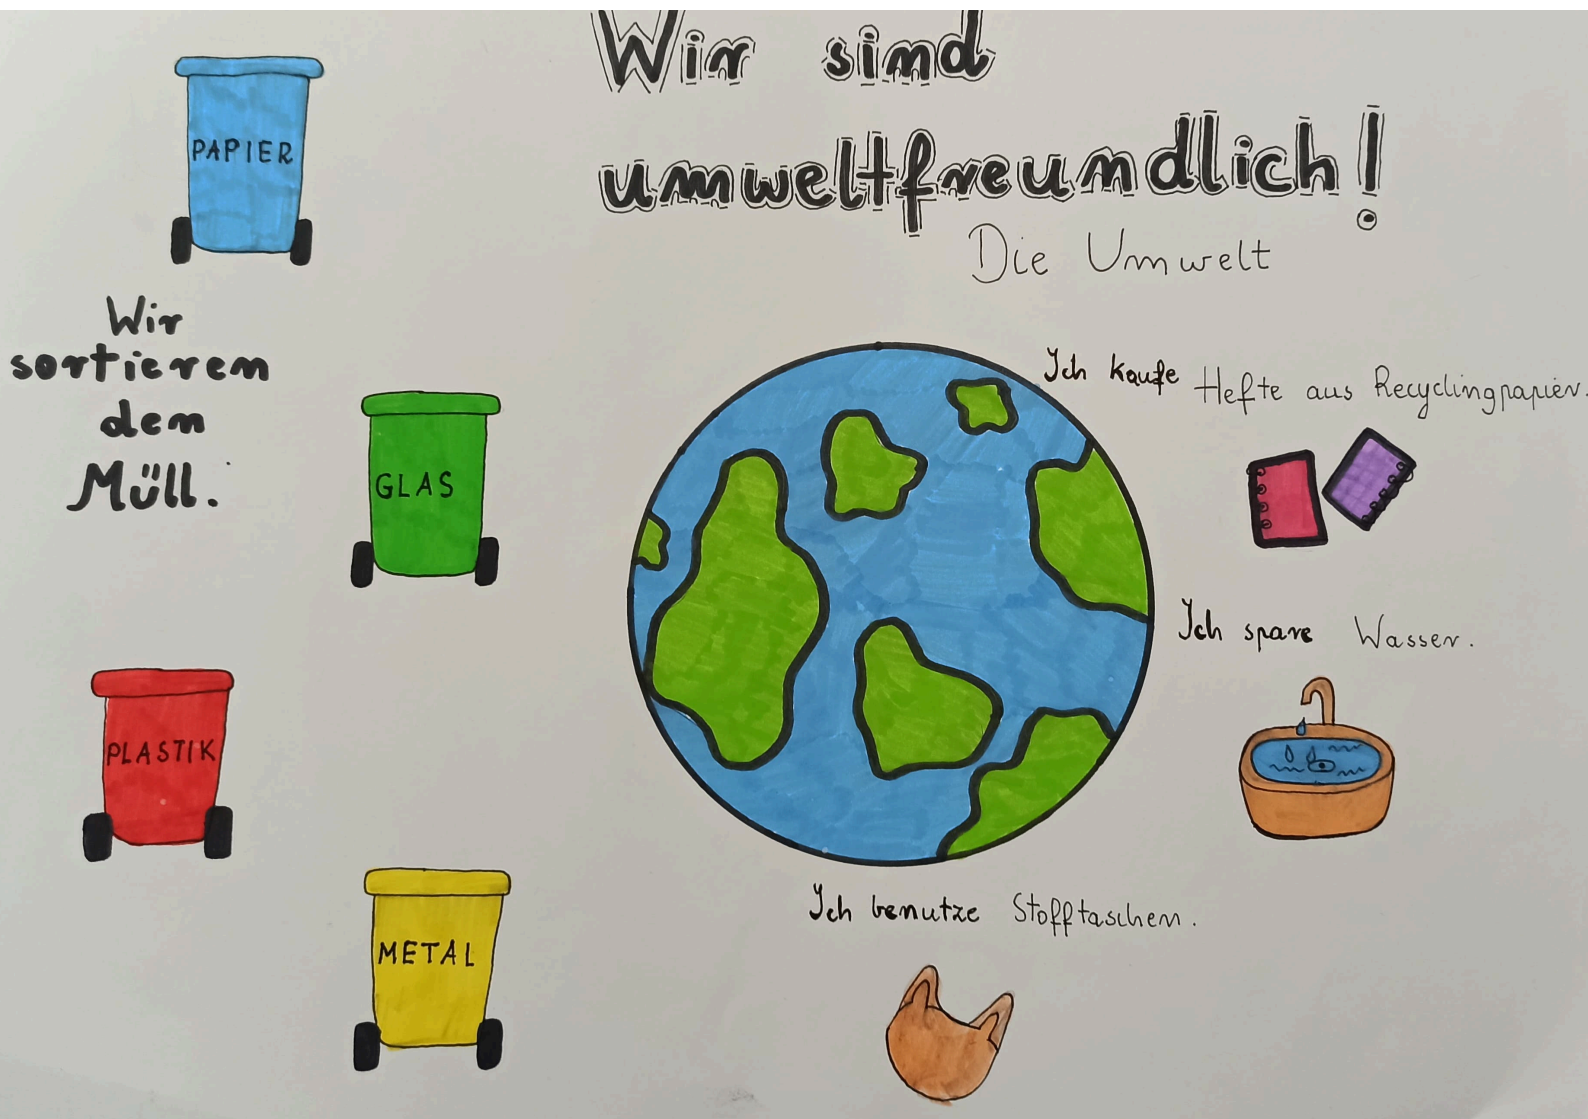 Wir sind
umweltfreundlich!
Die Umwelt
PAPIER
Wir
sortieren
den
Müll.
GLAS
PLASTIK
METAL
Ich kaufe Hefte aus Recyclingpapier.
Ich spare Wasser.
Ich benutze Stofftaschen.